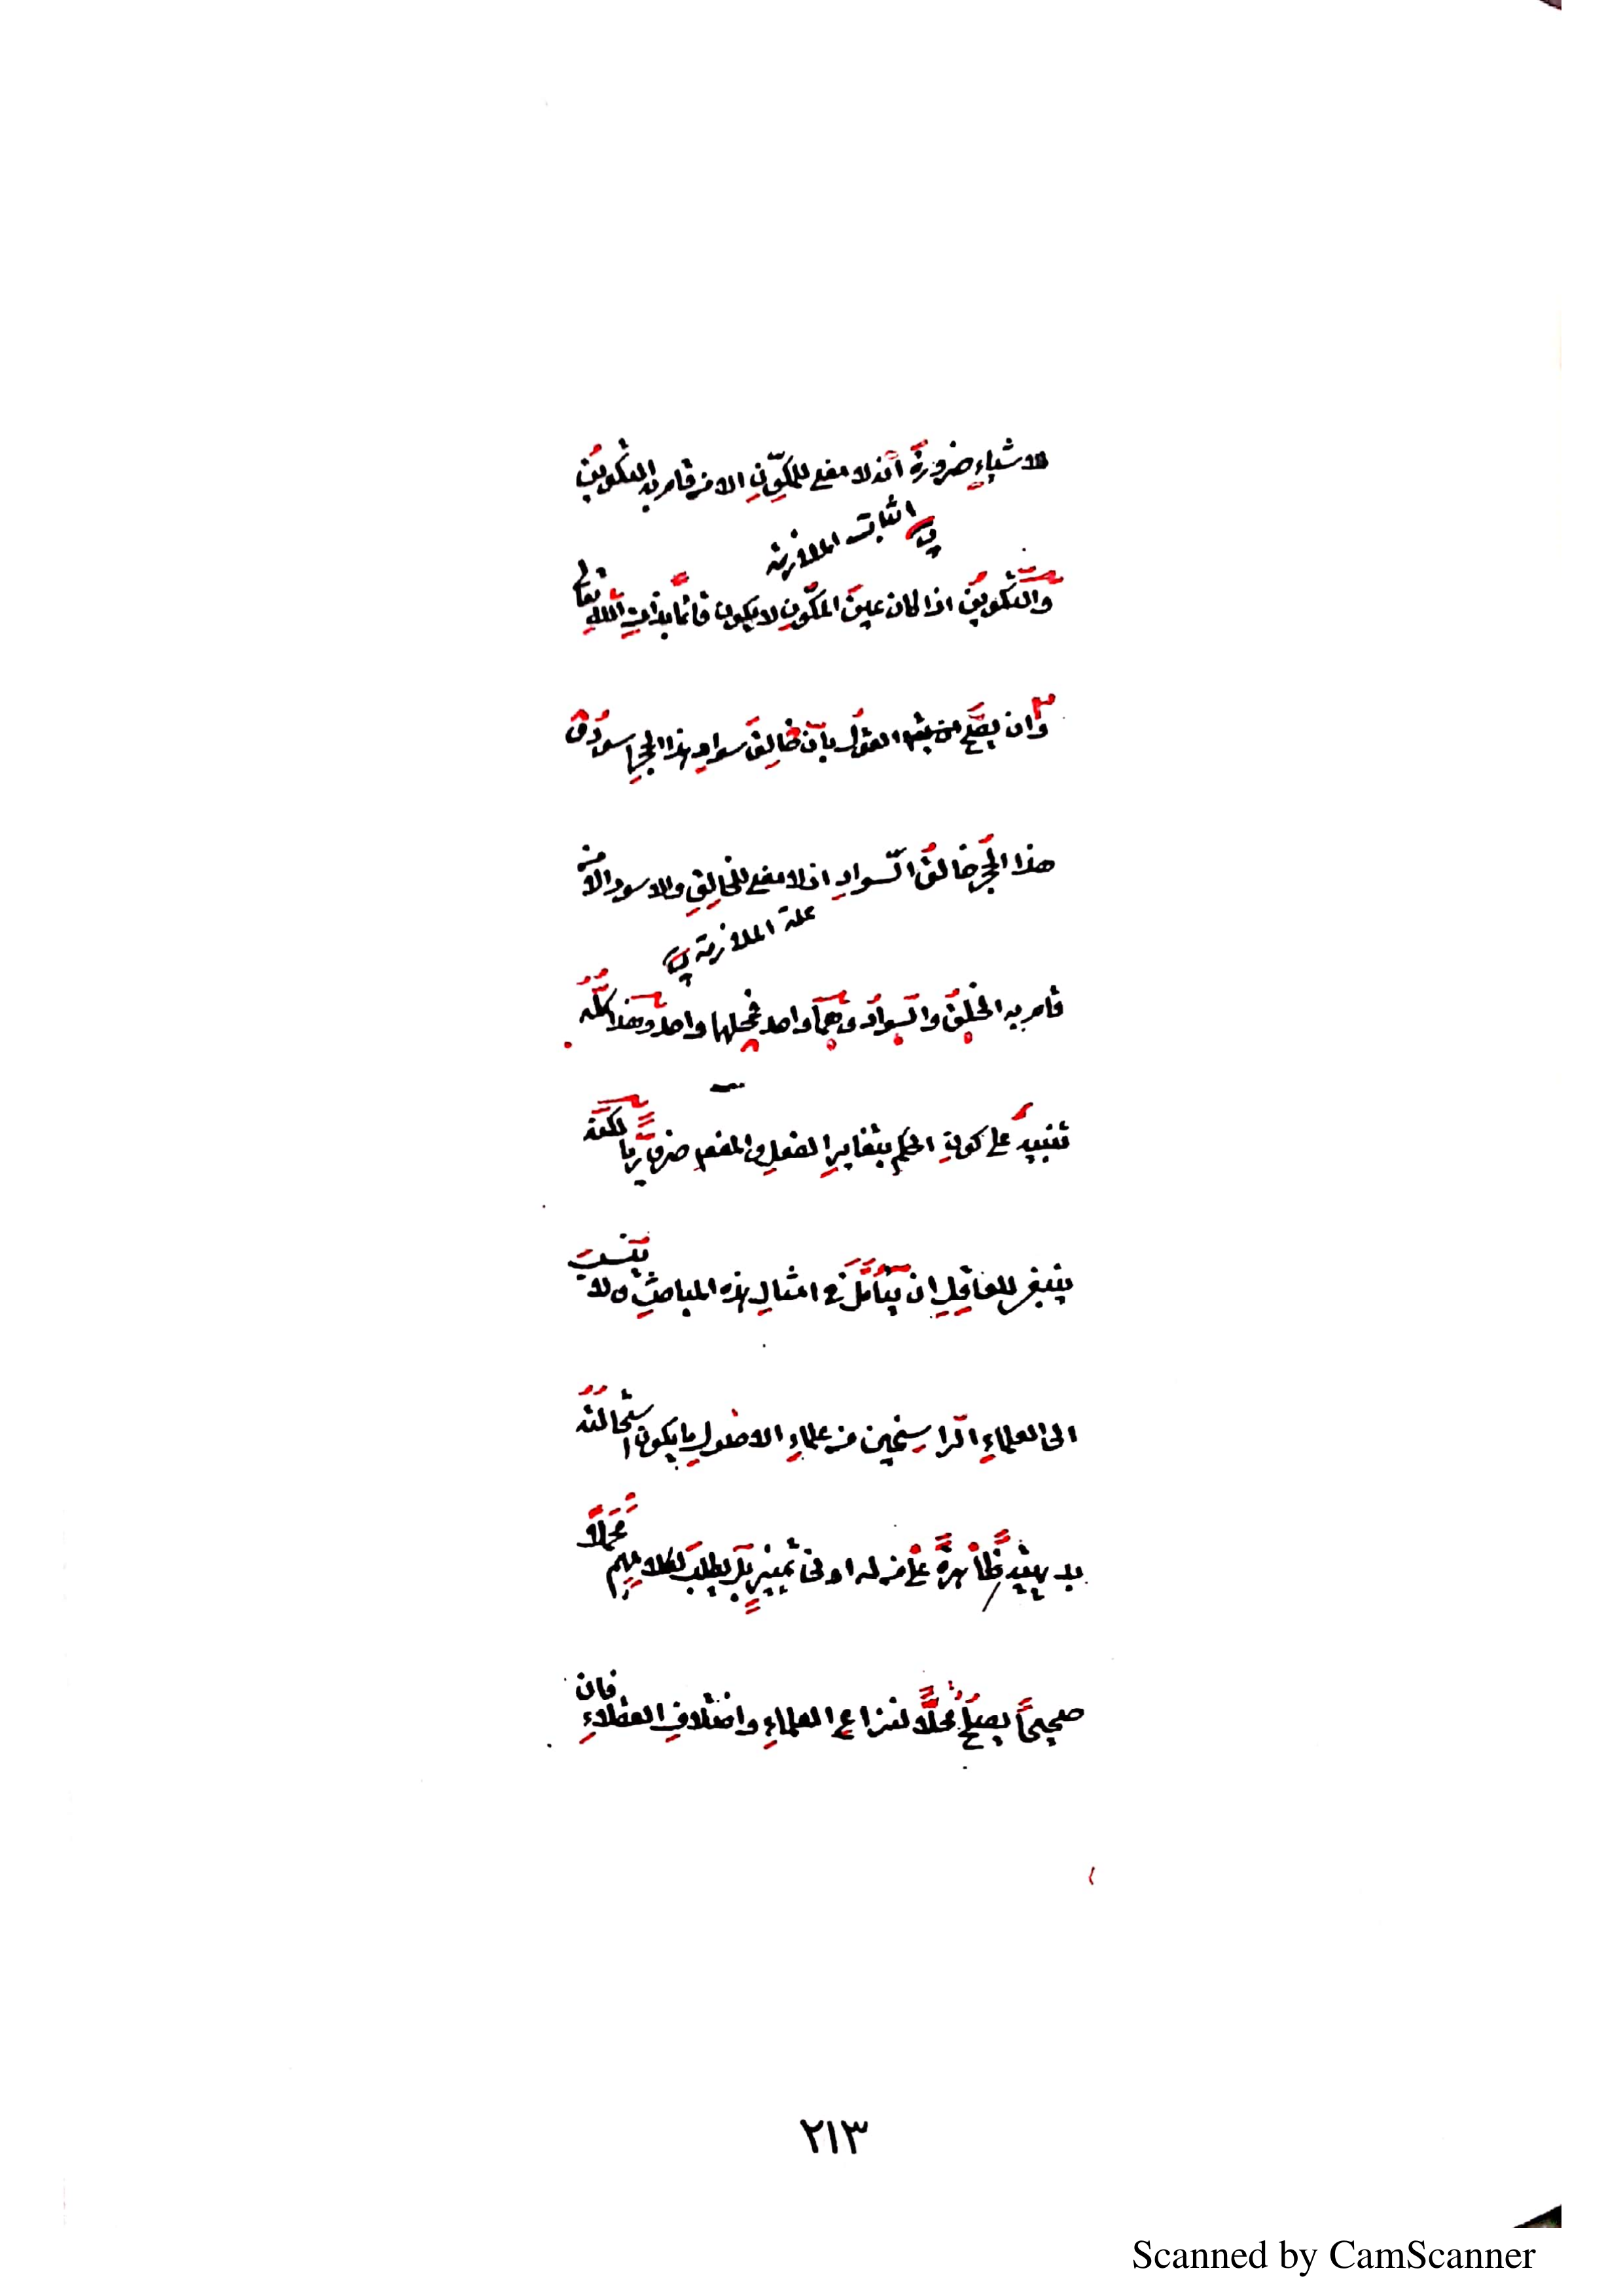 للاشياءِ ضرورةَ أنه لا معنى للمكوِّنِ الا من قام به التكوينُ
في اثبات الملازمة
والتَّكوينُ اذا كان عينَ المكوَّنِ لا يكون قائمًا بذاتِ اللّٰهِ تعالى
٣
وان يصحَّ القولُ بأنّ خالقَ سوادِ هذا الحجرِ اسودُ و
هذا الحجرُ خالقُ السّوادِ اذ لا معنى للخالقِ والاسود الا من
علة الملازمة
قام به الخلقُ والسّوادُ وهما واحد فمحلهما واحدٌ وهذا كلُّهُ
تنبيهٌ على كونِ الحكم بتغايرِ الفعلِ والمفعولِ ضروريًّا لكنّه
ينبغي للعاقلِ ان يتأمّلَ في امثالِ هذه المباحثِ ولا ينسبَ
الى العلماءِ الرّاسخين من علماءِ الاصولِ ما يكون استحالتُهُ
بديهيّةً ظاهرةً على من له ادنى تمييزٍ بل يطلبَ لكلامِهِم محملًا
صحيحًا يصلحُ محلًّا لنزاعِ العلماءِ واختلافِ العقلاءِ فان
٢١٣
Scanned by CamScanner